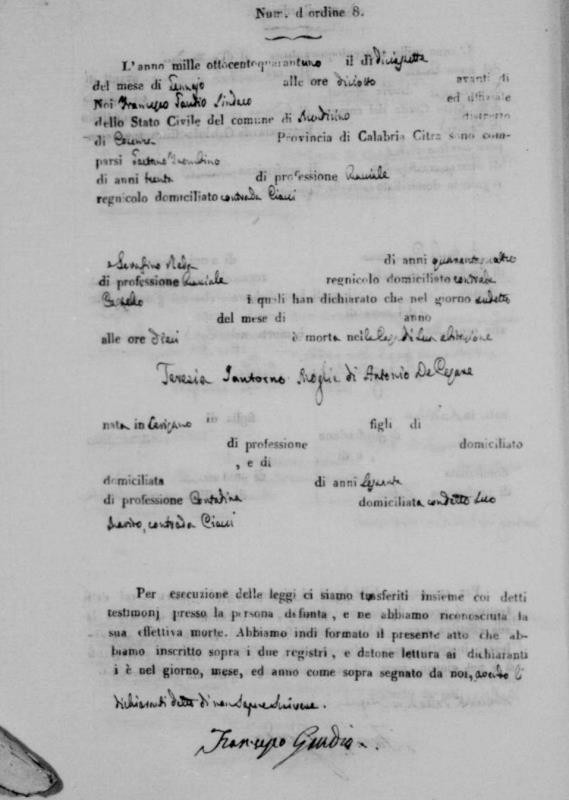 Num. d ordine 8.
L'anno mille ottocentoquarantuno il dì diciasette
del mese di Gennajo alle ore diciotto avanti di
Noi Francesco Gaudio Sindaco ed uffiziale
dello Stato Civile del comune di Mendicino distretto
di Cosenza Provincia di Calabria Citra sono com-
parsi Gaetano
di anni trenta di professione
regnicolo domiciliato contrada Ciauci
e Serafino Reda di anni quarantaquattro
di professione regnicolo domiciliato contrada
i quali han dichiarato che nel giorno sudetto
del mese di anno
alle ore dieci è morta nella Casa di sua abitazione
Teresia Santorno Moglie di Antonio De Cesare
nata in Cerisano figli di
di professione domiciliato
, e di
domiciliata di anni sesanta
di professione Contadina domiciliata condetto suo
marito, contrada Ciauci
Per esecuzione delle leggi ci siamo trasferiti insieme coi detti
testimonj presso la persona defunta, e ne abbiamo riconosciuta la
sua effettiva morte. Abbiamo indi formato il presente atto che ab-
biamo inscritto sopra i due registri, e datone lettura ai dichiaranti
i è nel giorno, mese, ed anno come sopra segnato da noi, avendo i
dichiaranti detto di non sapere scrivere.
Francesco Gaudio